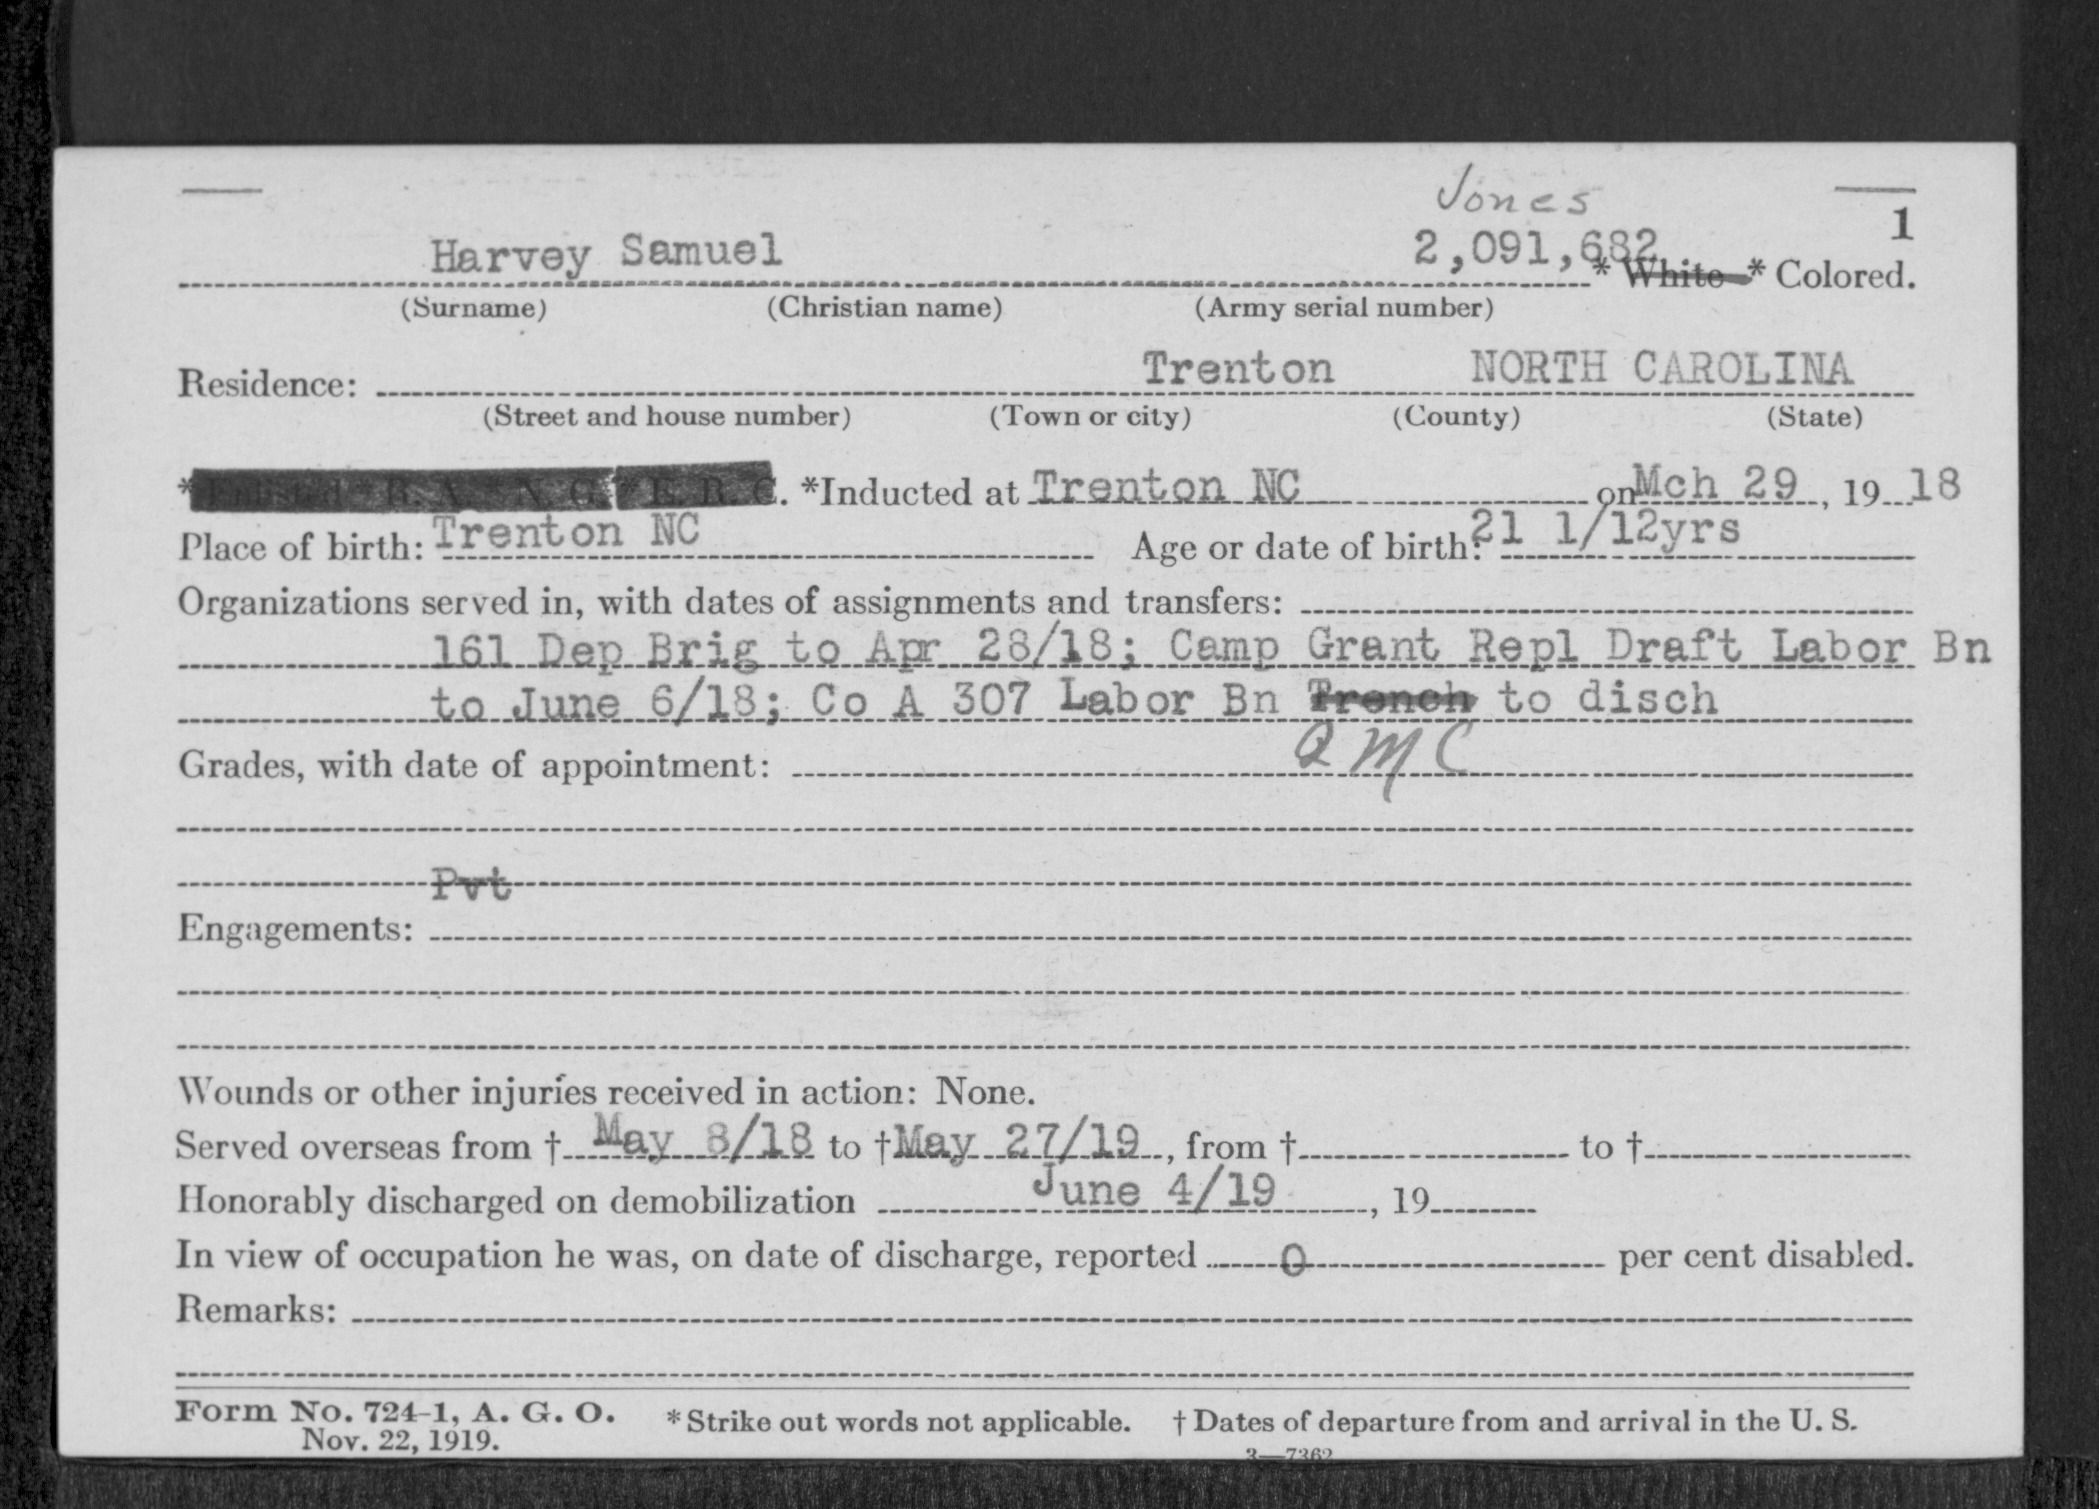 Jones
1
Harvey Samuel 2,091,682 * White * Colored.
(Surname) (Christian name) (Army serial number)
Trenton NORTH CAROLINA
Residence:
(Street and house number) (Town or city) (County) (State)
*Enlisted * R. A. * N. G. * E. R. C. *Inducted at Trenton NC on Mch 29, 19 18
Place of birth: Trenton NC Age or date of birth: 21 1/12yrs
Organizations served in, with dates of assignments and transfers:
161 Dep Brig to Apr 28/18; Camp Grant Repl Draft Labor Bn
to June 6/18; Co A 307 Labor Bn Trench to disch
Q M C
Grades, with date of appointment:
Pvt
Engagements:
Wounds or other injuries received in action: None.
Served overseas from † May 8/18 to † May 27/19, from † to †
Honorably discharged on demobilization June 4/19, 19
In view of occupation he was, on date of discharge, reported 0 per cent disabled.
Remarks:
Form No. 724-1, A. G. O. *Strike out words not applicable. † Dates of departure from and arrival in the U. S.
Nov. 22, 1919.
3—7362